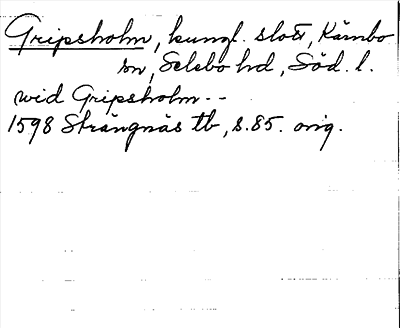 Gripsholm, kungl. slott, Kärnbo
sn, Selebo hd, Söd. l.
wid Gripsholm --
1598 Strängnäs tb, s. 85. orig.